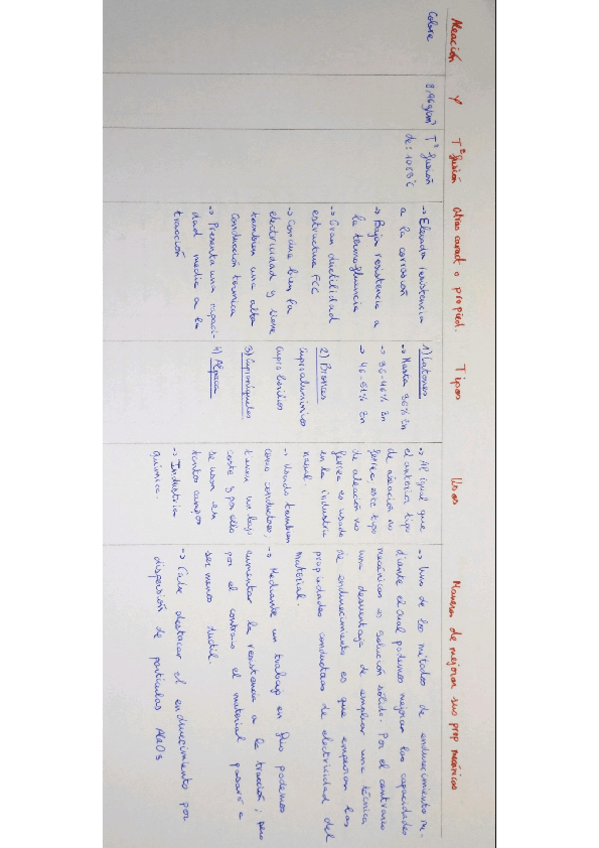 Aleación
ρ
Tª fusión
Otras caract. o propied.
Tipos
Usos
Maneras de mejorar sus prop mecánicas
Cobre
8,96g/cm³
Tª fusión
de: 1083ºC
-> Elevada resistencia
a la corrosión
-> Baja resistencia a
la termofluencia
-> Gran ductilidad
estructura FCC
-> Conduce bien la
electricidad y tiene
tambien una alta
conducción térmica
-> Presenta una capaci-
dad media a la
tracción
1) Latones
-> Hasta 36% Zn
-> 36-46% Zn
-> 46-51% Zn
2) Bronces
Cuproaluminios
Cuproberilios
3) Cuproníqueles
4) Alpaca
-> Al igual que
el anterior tipo
de aleación no
férrea este tipo
de aleación no
férrea es usado
en la industria
naval.
-> Usado tambien
como conductores,
tienen un bajo
coste y por ello
se usan en
tantos campos
-> Industria
química.
-> Uno de los métodos de endurecimiento me-
diante el cual podemos mejorar las capacidades
mecánicas es solución sólida. Por el contrario
una desventaja de emplear una técnica
de endurecimiento es que empeoran las
propiedades conductoras de electricidad del
material.
-> Mediante un trabajo en frío podemos
aumentar la resistencia a la tracción; pero
por el contrario el material pasará a
ser menos dúctil
-> Cabe destacar el endurecimiento por
dispersión de partículas Al2O3